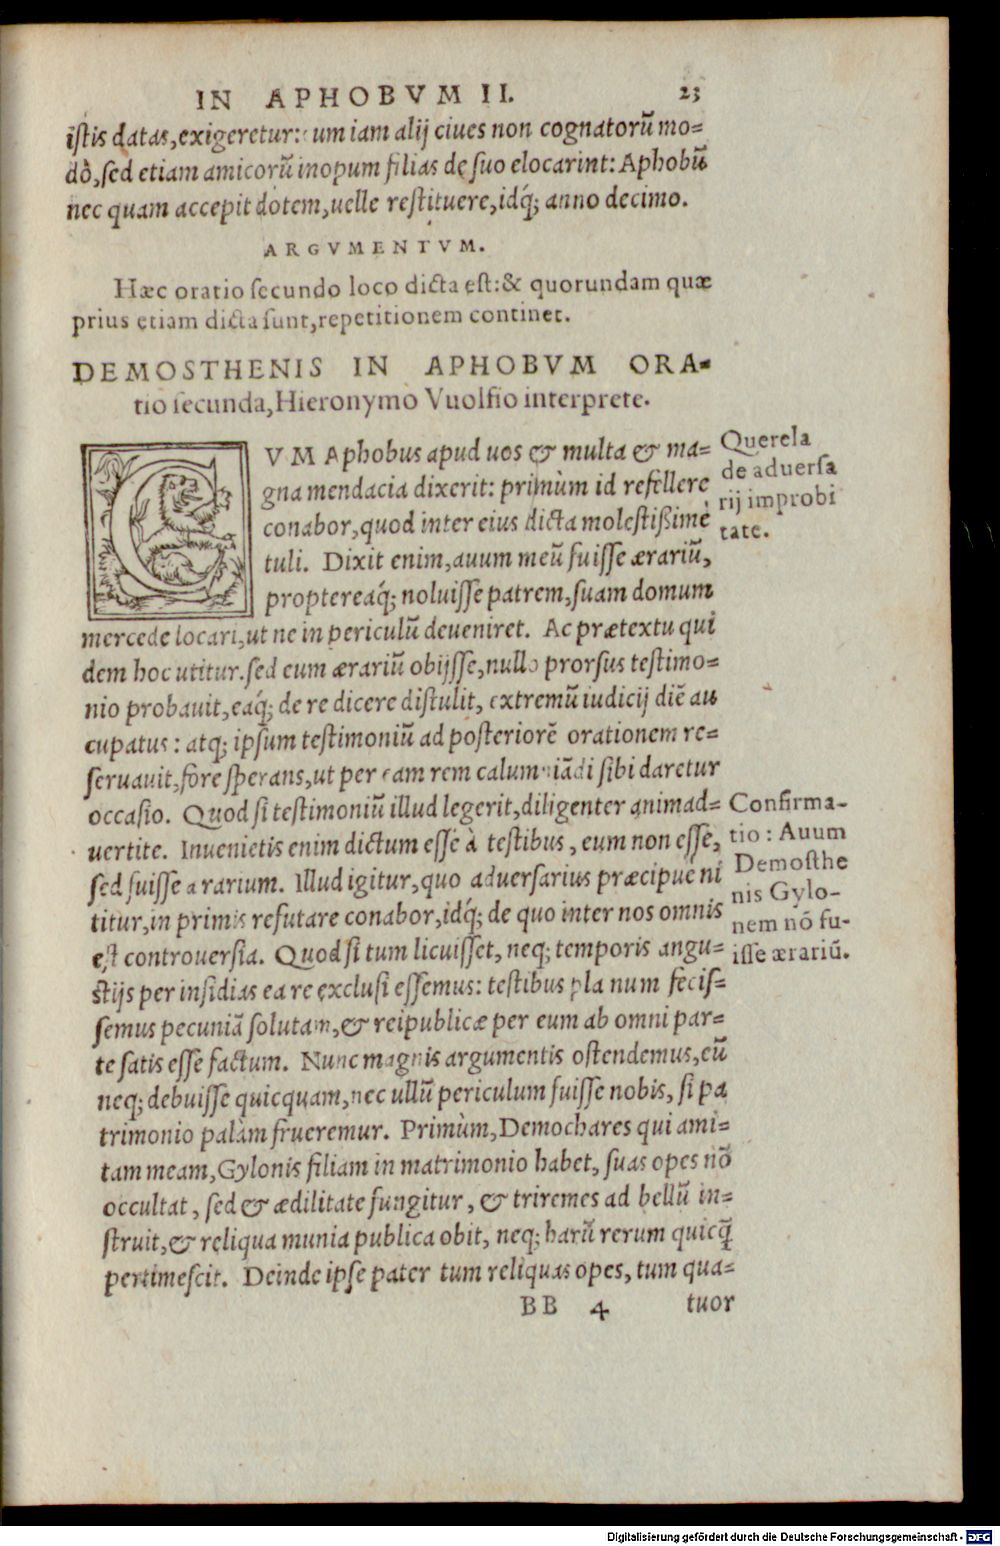 IN APHOBVM II. 23
istis datas, exigeretur: cum iam alij ciues non cognatorũ mo=
dò, sed etiam amicorũ inopum filias de suo elocarint: Aphobũ
nec quam accepit dotem, uelle restituere, idq́; anno decimo.
ARGVMENTVM.
Hæc oratio secundo loco dicta est: & quorundam quæ
prius etiam dicta sunt, repetitionem continet.
DEMOSTHENIS IN APHOBVM ORA=
tio secunda, Hieronymo Vuolfio interprete.
CVM Aphobus apud uos & multa & ma=
gna mendacia dixerit: primùm id refellere
conabor, quod inter eius dicta molestißimè
tuli. Dixit enim, auum meũ fuisse ærariũ,
proptereaq́; noluisse patrem, suam domum
mercede locari, ut ne in periculũ deueniret. Ac prætextu qui
dem hoc utitur. sed eum ærariũ obijsse, nullo prorsus testimo=
nio probauit, eaq́; de re dicere distulit, extremũ iudicij diẽ au
cupatus: atq; ipsum testimoniũ ad posteriorẽ orationem re=
seruauit, fore sperans, ut per eam rem calumniãdi sibi daretur
occasio. Quod si testimoniũ illud legerit, diligenter animad=
uertite. Inuenietis enim dictum esse à testibus, eum non esse,
sed fuisse ærarium. Illud igitur, quo aduersarius præcipue ni
titur, in primis refutare conabor, idq́; de quo inter nos omnis
est controuersia. Quod si tum licuisset, neq; temporis angu=
stijs per insidias ea re exclusi essemus: testibus planum fecis=
semus pecuniã solutam, & reipublicæ per eum ab omni par=
te satis esse factum. Nunc magnis argumentis ostendemus, eũ
neq; debuisse quicquam, nec ullũ periculum fuisse nobis, si pa
trimonio palàm frueremur. Primùm, Demochares qui ami=
tam meam, Gylonis filiam in matrimonio habet, suas opes nõ
occultat, sed & ædilitate fungitur, & triremes ad bellũ in=
struit, & reliqua munia publica obit, neq; harũ rerum quicq̃
pertimescit. Deinde ipse pater tum reliquas opes, tum qua=
BB 4 tuor
Querela
de aduersa
rij improbi
tate.
Confirma-
tio: Auum
Demosthe
nis Gylo-
nem nõ fu-
isse ærariũ.
Digitalisierung gefördert durch die Deutsche Forschungsgemeinschaft - DFG